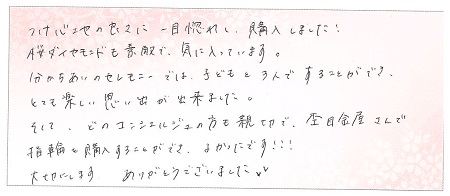 つけ心地の良さに一目惚れし、購入しました!
桜ダイヤモンドも素敵で、気に入っています。
分かちあいのセレモニーでは、子どもと3人ですることができ、
とても楽しい思い出が出来ました。
そして、どのコンシェルジュの方も親切で、杢目金屋さんで
指輪を購入することができ、よかったです!!!
大切にします。ありがとうございました